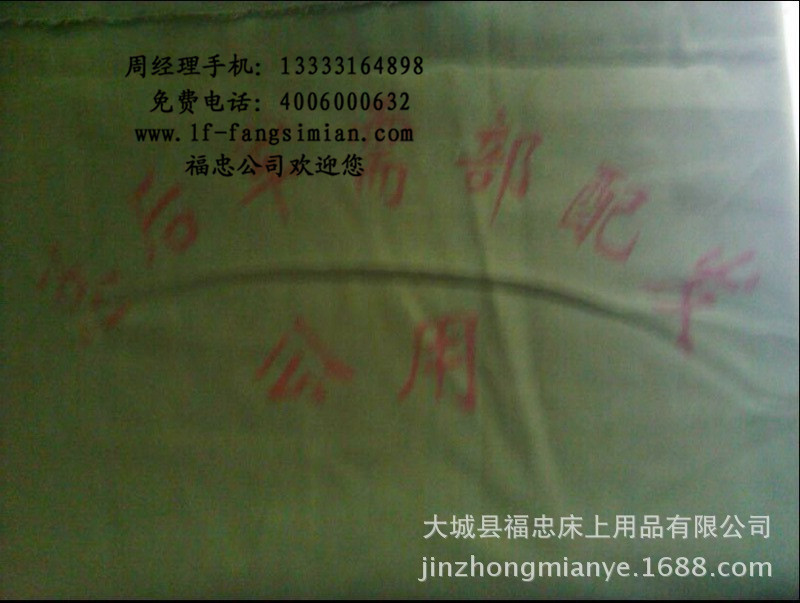 周经理手机: 13333164898
免费电话: 4006000632
www.lf-fangsimian.com
福忠公司欢迎您
后 需部配
公用
大城县福忠床上用品有限公司
jinzhongmianye.1688.com